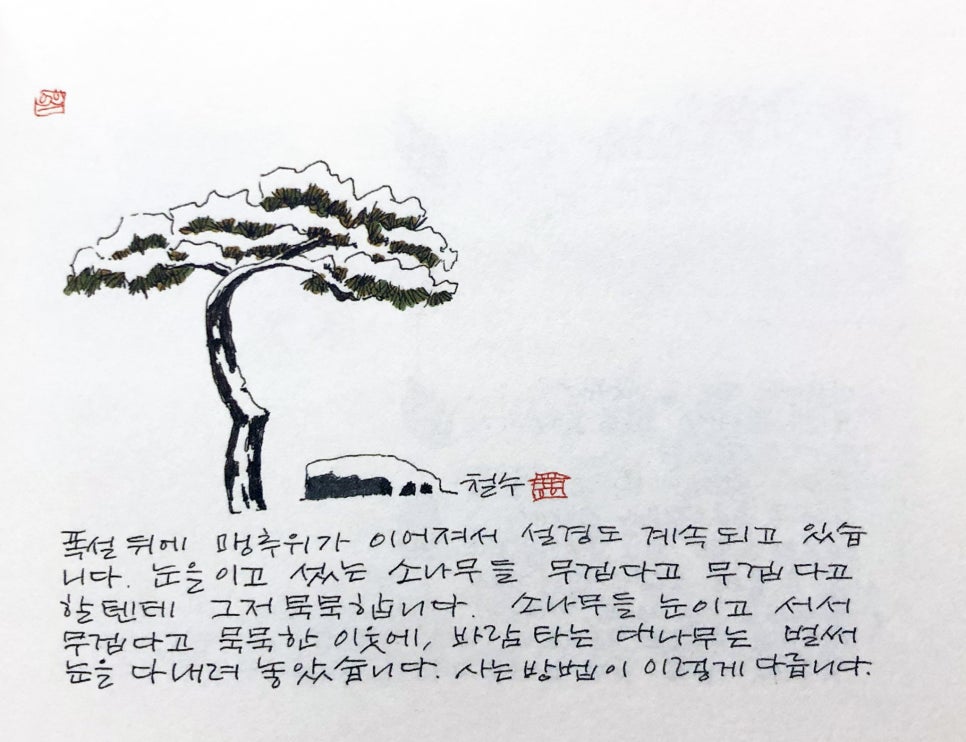 철수
폭설 뒤에 맹추위가 이어져서 설경도 계속되고 있습
니다. 눈을 이고 섰는 소나무들 무겁다고 무겁다고
할텐데 그저 묵묵합니다. 소나무들 눈 이고 서서
무겁다고 묵묵한 이웃에, 바람 타는 대나무는 벌써
눈을 다 내려 놓았습니다. 사는 방법이 이렇게 다릅니다.